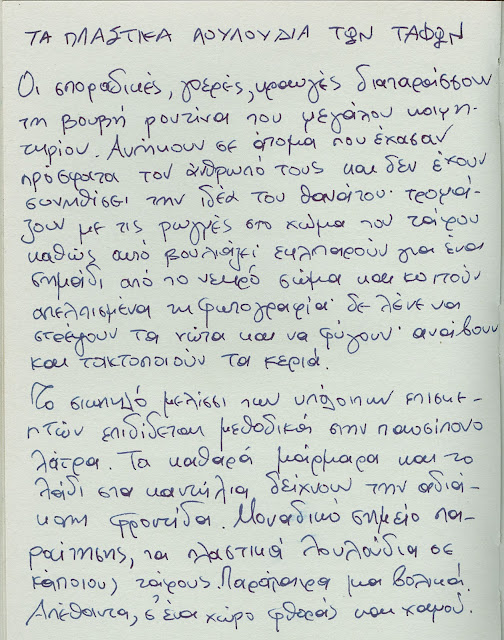 ΤΑ ΠΛΑΣΤΙΚΑ ΛΟΥΛΟΥΔΙΑ ΤΩΝ ΤΑΦΩΝ
Οι σποραδικές, γοερές, κραυγές διαταράσσουν
τη βουβή ρουτίνα του μεγάλου κοιμη-
τηρίου. Ανήκουν σε άτομα που έχασαν
πρόσφατα τον άνθρωπό τους και δεν έχουν
συνηθίσει την ιδέα του θανάτου· τρομά-
ζουν με τις ρωγμές στο χώμα του τάφου
καθώς αυτό βουλιάζει· εκλιπαρούν για ένα
σημάδι από το νεκρό σώμα και κοιτούν
απελπισμένα τη φωτογραφία· δε λένε να
στρέψουν τα νώτα και να φύγουν· ανάβουν
και τακτοποιούν τα κεριά.
Το σιωπηλό μελίσσι των υπόλοιπων επισκε-
πτών επιδίδεται μεθοδικά στην παυσίπονο
λάτρα. Τα καθαρά μάρμαρα και το
λάδι στα καντήλια δείχνουν την αδιά-
κοπη φροντίδα. Μοναδικό σημείο πα-
ραίτησης, τα πλαστικά λουλούδια σε
κάποιους τάφους. Παράταιρα μα βολικά.
Απέθαντα, σ' ένα χώρο φθοράς και χαμού.